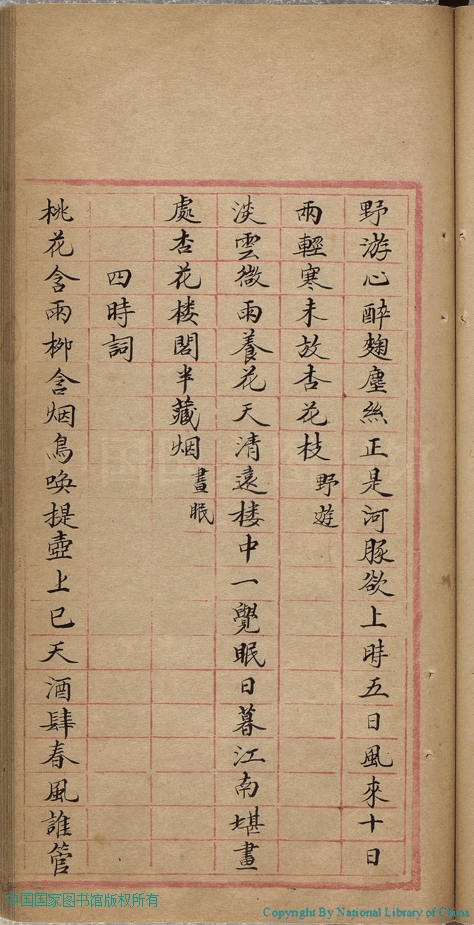 野游心醉麴塵絲正是河豚欲上時五日風來十日
雨輕寒未放杏花枝 野遊
淡雲微雨養花天清遠楼中一覺眠日暮江南堪畫
處杏花楼閣半藏烟 晝眠
四時詞
桃花含雨柳含烟鳥喚提壺上巳天酒肆春風誰管
中国国家图书馆版权所有
Copyright By National Library of China